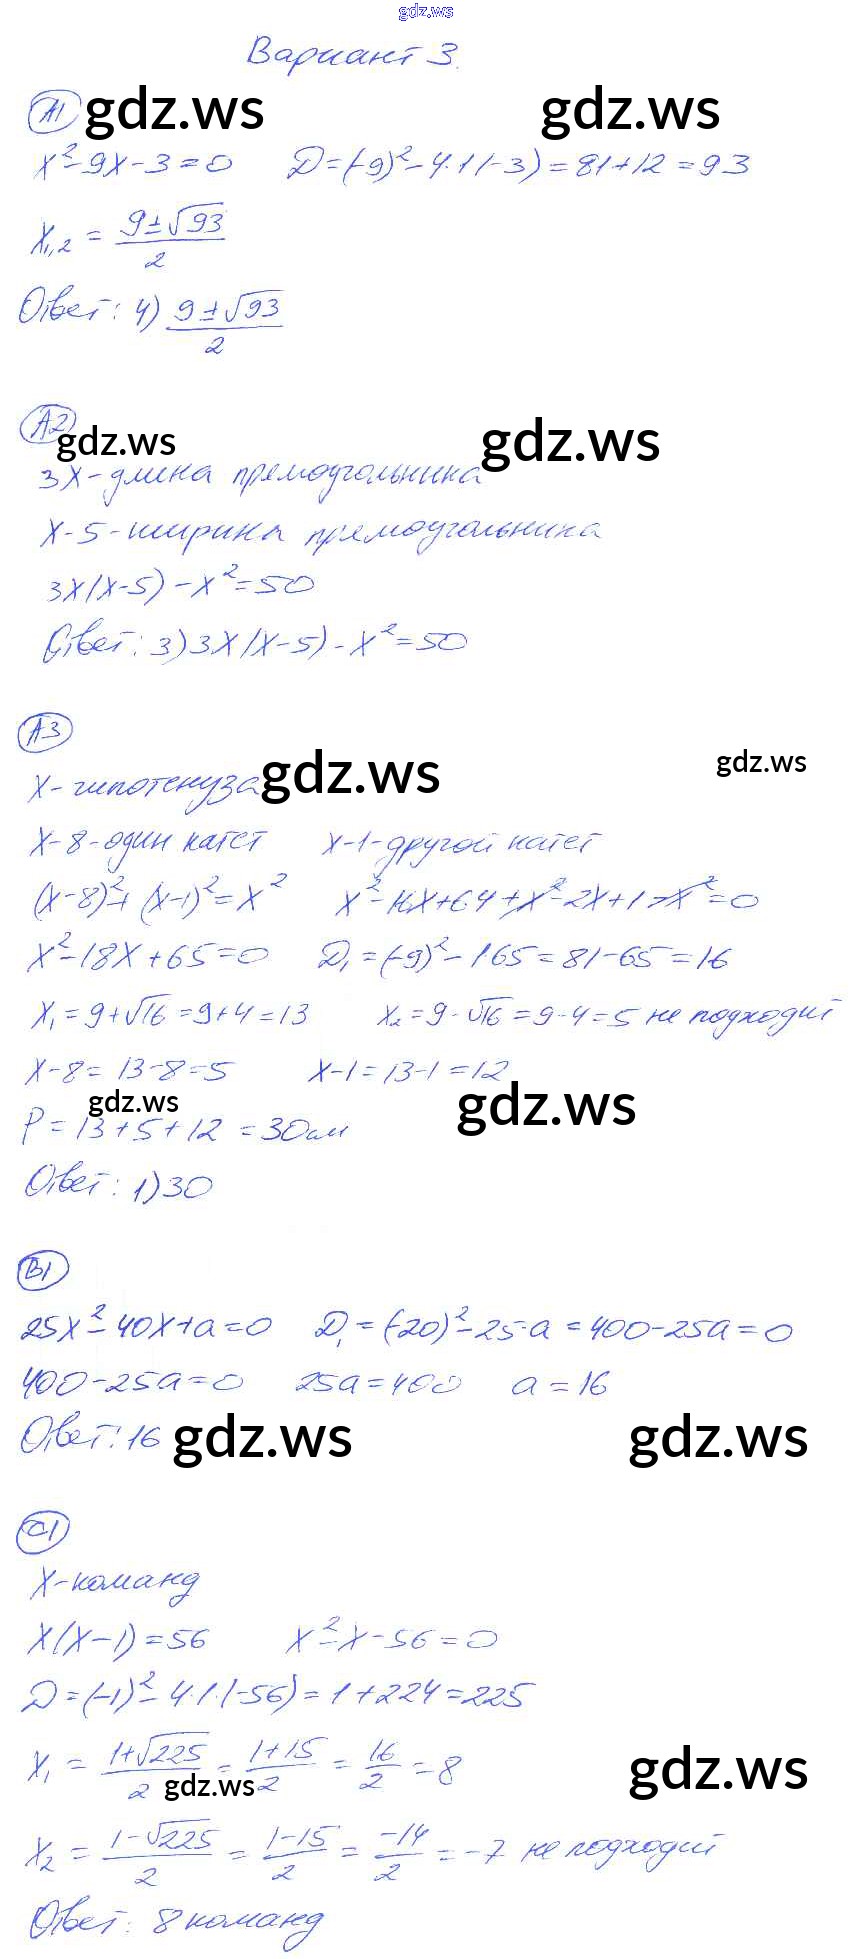 gdz.ws
Вариант 3.
А1 gdz.ws gdz.ws
x²-9x-3=0 D=(-9)²-4·1(-3)=81+12=93
x₁,₂ = (9±√93)/2
Ответ: 4) (9±√93)/2
А2
gdz.ws gdz.ws
3x-длина прямоугольника
x-5-ширина прямоугольника
3x(x-5)-x²=50
Ответ: 3)3x(x-5)-x²=50
А3
x-гипотенуза gdz.ws gdz.ws
x-8-один катет x-1-другой катет
(x-8)²+(x-1)²=x² x²-16x+64+x²-2x+1-x²=0
x²-18x+65=0 D₁=(-9)²-1·65=81-65=16
x₁=9+√16=9+4=13 x₂=9-√16=9-4=5 не подходит
x-8=13-8=5 x-1=13-1=12
gdz.ws gdz.ws
P=13+5+12=30см
Ответ: 1)30
В1
25x²-40x+a=0 D₁=(-20)²-25·a=400-25a=0
400-25a=0 25a=400 a=16
Ответ: 16 gdz.ws gdz.ws
С1
x-команд
x(x-1)=56 x²-x-56=0
D=(-1)²-4·1·(-56)=1+224=225
x₁ = (1+√225)/2 = (1+15)/2 = 16/2 = 8 gdz.ws
gdz.ws
x₂ = (1-√225)/2 = (1-15)/2 = -14/2 = -7 не подходит
Ответ: 8 команд